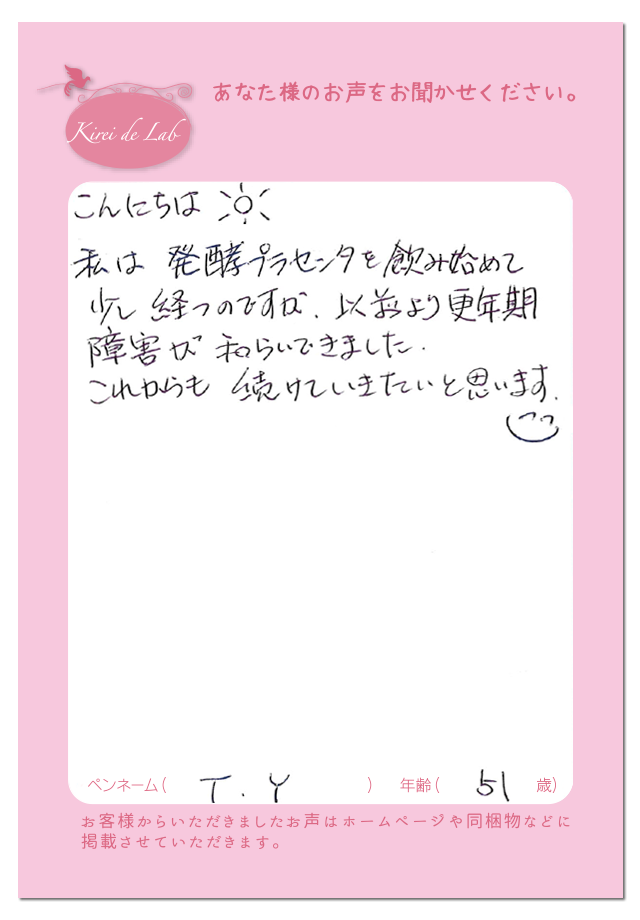 あなた様のお声をお聞かせください。
Kirei de Lab
こんにちは
私は 発酵プラセンタを飲み始めて
少し 経つのですが、以前より更年期
障害が 和らいできました.
これからも 続けていきたいと思います.
ペンネーム( T.Y ) 年齢( 51 歳)
お客様からいただきましたお声はホームページや同梱物などに
掲載させていただきます。